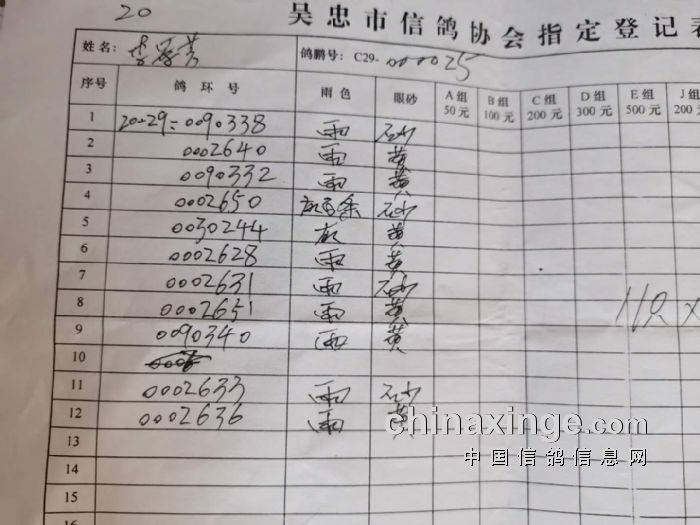 20
吴忠市信鸽协会指定登记表
姓名: 鸽鹏号: C29-000025
序号 鸽环号 雨色 眼砂 A组 50元 B组 100元 C组 200元 D组 300元 E组 500元 J组 200
1 20-29-0090338 雨 砂
2 0002640 雨 黄
3 0090332 雨 黄
4 0002650 砂
5 0030244 灰 黄
6 0002628 雨 黄
7 0002631 雨 砂
8 0002651 雨 黄
9 0090340 雨 黄
10
11 0002633 雨 砂
12 0002636 雨 黄
13
14
15
16
11只 x
chinaxinge.com
中国信鸽信息网